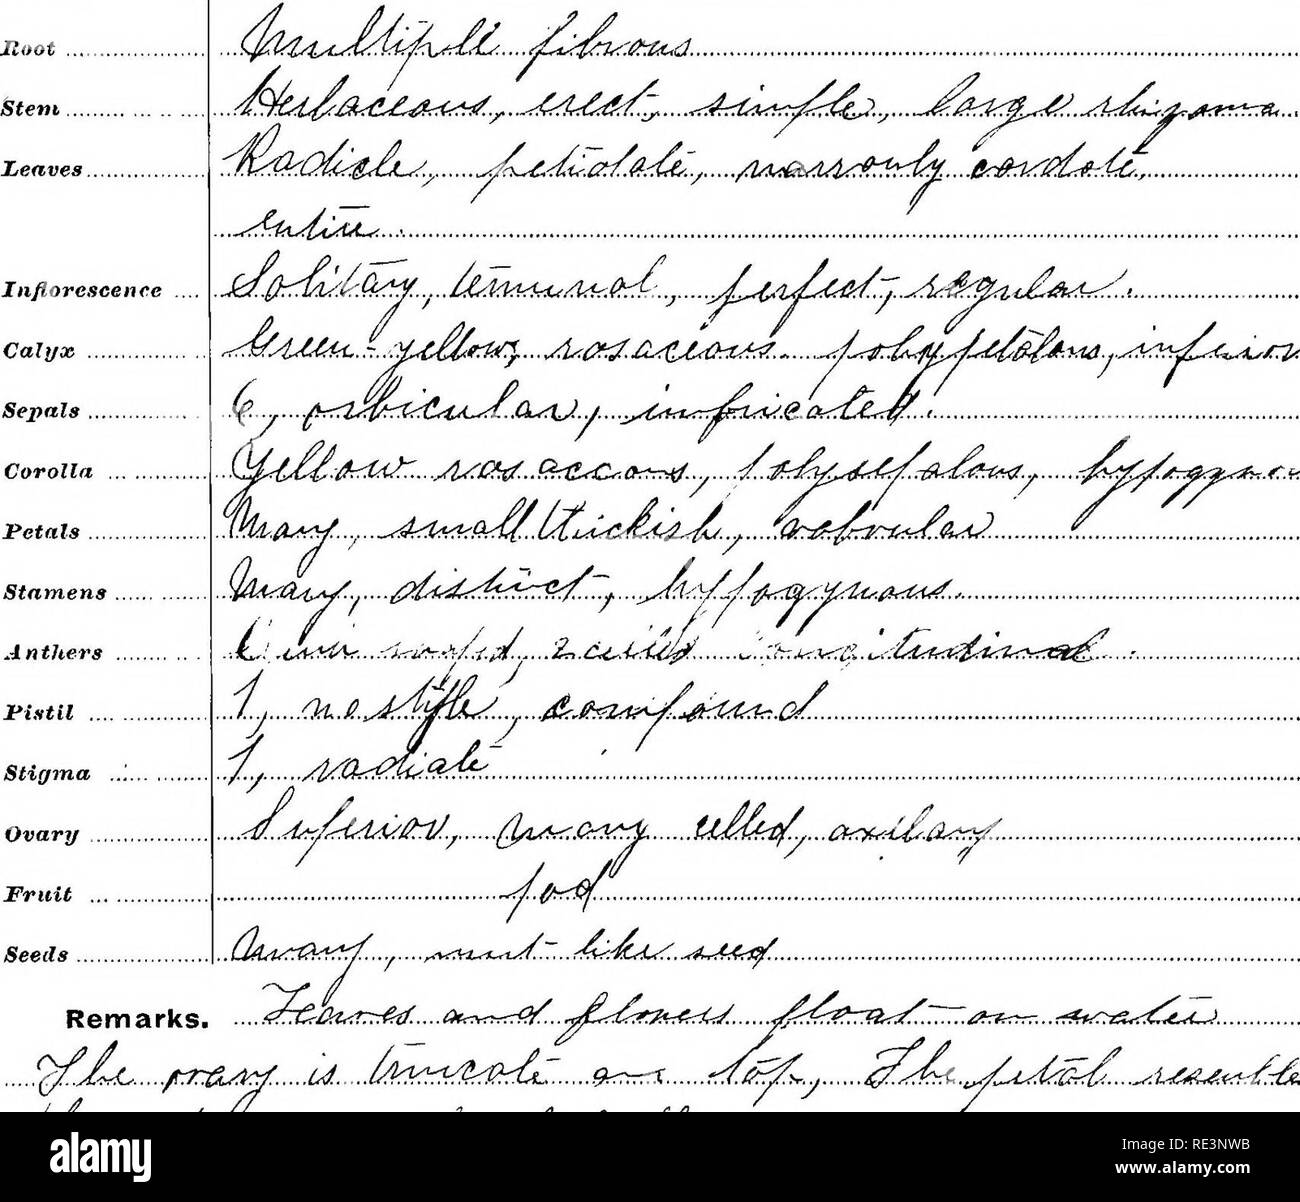 Root Multiple fibrous
Stem Herbaceous, erect, simple, large rhizoma
Leaves Radicle, petiolate, narrowly cordate,
entire.
Inflorescence Solitary, terminal, perfect, regular.
Calyx Green-yellow, rosaceous. polypetalous, inferior
Sepals 6, orbicular, imbricated.
Corolla Yellow rosaceous, polysepalous, hypogynous
Petals Many, small thickish,
Stamens Many, distinct, hypogynous.
Anthers 2 celled longitudinal.
Pistil 1, no style, compound
Stigma 1, radiate
Ovary Superior, many celled, axilary
Fruit pod
Seeds Many, nut like seed
Remarks. Leaves and flowers float on water
The ovary is truncate on top, The petal resemble
alamy
Image ID: RE3NWB
www.alamy.com